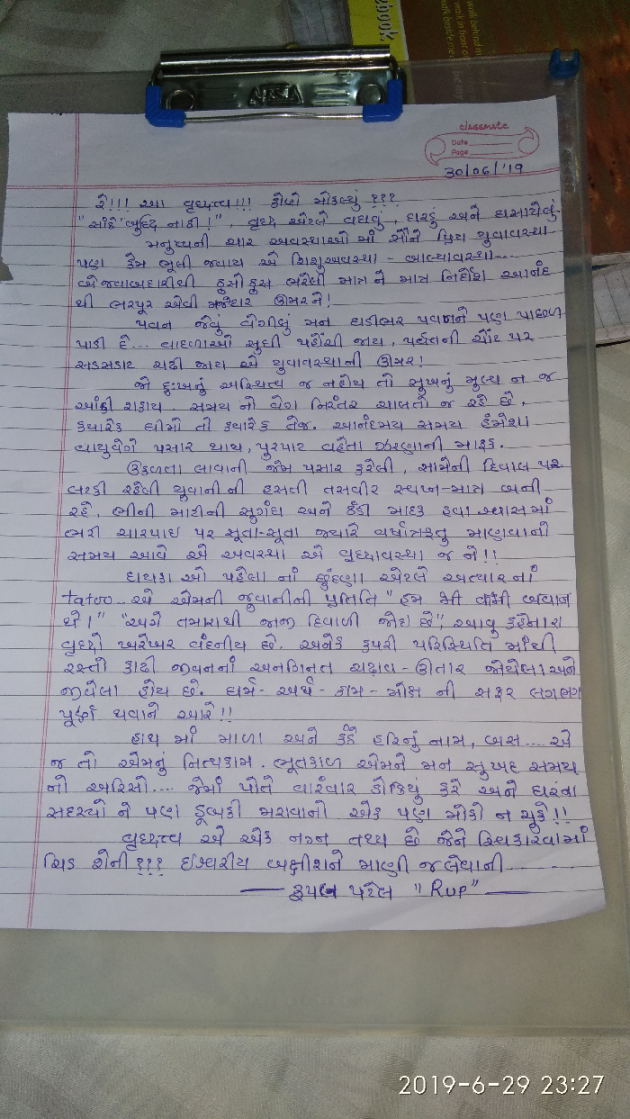 classmate
Date
Page
30/06/'19
રે!!! આ વૃધ્ધત્વ!!! કોણે મોકલ્યું???
"સાઠે બુધ્ધિ નાઠી!", વૃધ્ધ એટલે વધવું, ઘરડું અને ઘસાયેલું.
મનુષ્યની ચાર અવસ્થાઓ માં સૌને પ્રિય યુવાવસ્થા
પણ કેમ ભૂલી જવાય એ શિશુઅવસ્થા - બાલ્યાવસ્થા...
બેજવાબદારીથી ઠૂસોઠૂસ ભરેલી માત્ર ને માત્ર નિર્દોશ આનંદ
થી ભરપૂર એવી મજેદાર ઊંમરને!
પવન જેવું વેગીલું મન ઘડીભર પવનને પણ પાછળ
પાડી દે... વાદળાઓ સુધી પહોંચી જાય, પર્વતની ચોંટ પર
સડસડાટ ચઢી જાય એ યુવાવસ્થાની ઊંમર!
જો દુઃખનું અસ્તિત્વ જ નહોય તો સુખનું મૂલ્ય ન જ
આંકી શકાય. સમય નો વેગ નિરંતર ચાલતો જ રહે છે,
ક્યારેક ધીમો તો ક્યારેક તેજ. આનંદમય સમય હંમેશા
વાયુવેગે પસાર થાય, પુરપાટ વહેતા ઝરણાની માફક.
ઉકળતા લાવાની જેમ પસાર કરેલી, સામેની દિવાલ પર
લટકી રહેલી યુવાની ની હસતી તસવીર સ્વપ્ન-માત્ર બની
રહે. ભીની માટીની સુગંધ અને ઠંડી માદક હવા શ્વાસમાં
ભરી ચારપાઇ પર સૂતા-સૂતા જ્યારે વર્ષાઋતુ માણવાનો
સમય આવે એ અવસ્થા એ વૃધ્ધાવસ્થા જ ને!!
દાયકા ઓ પહેલા નાં છુંદણા એટલે અત્યારનાં
tatoo... એ એમની જુવાનીની પ્રતિતિ "હમ ભી કભી જવાન
થે!" "અમે તમારાથી જાજી દિવાળી જોઇ છે", આવુ કહેનારા
વૃધ્ધો ખરેખર વંદનીય છે. અનેક કપરી પરિસ્થિતિ માંથી
રસ્તો કાઢી જીવનનાં અનગિનત ચઢાવ-ઊતાર જોયેલા અને
જીવેલા હોય છે. ધર્મ-અર્થ-કામ-મોક્ષ ની સફર લગભગ
પૂર્ણ થવાને આરે!!
હાથ માં માળા અને કંઠે હરિનું નામ, બસ... એ
જ તો એમનું નિત્યકામ. ભૂતકાળ એમને મન સુખદ સમય
નો અરિસો... જેમાં પોતે વારંવાર ડોકિયું કરે અને ઘરના
સદસ્યો ને પણ ડૂબકી મરાવાનો એક પણ મોકો ન ચૂકે!!
વૃધ્ધત્વ એ એક નગ્ન તથ્ય છે જેને સ્વિકારવામાં
ચિડ શેની??? ઈશ્વરીય બક્ષીશને માણી જ લેવાની
— રૂપલ પટેલ "Rup" —
2019-6-29 23:27